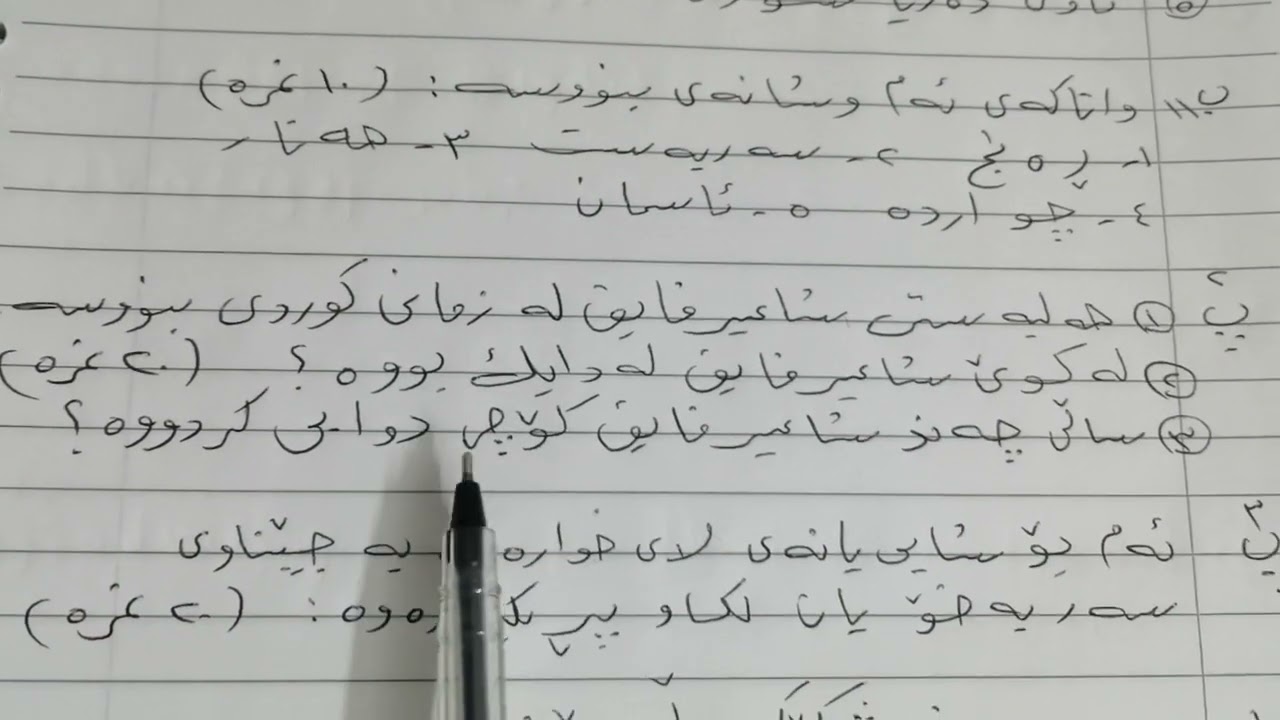 پ١١ واتاکەی ئەم وشانەی بنووسە: (١٠ نمرە)
١- ڕەنج ٢- سەربەست ٣- هەتار
٤- چواردە ٥- ئاسمان
پ٢ ① هەلبەستی شاعیر فایق لە زمانی کوردی بنووسە
② لە کوێ شاعیر فایق لە دایك بووە؟ (٢٠ نمرە)
③ ساڵی چەند شاعیر فایق کۆچی دوایی کردووە؟
پ٣ ئەم بۆشاییانەی لای خوارە بە جێناوی
سەربەخۆ یان لکاو پڕ: (٢٠ نمرە)